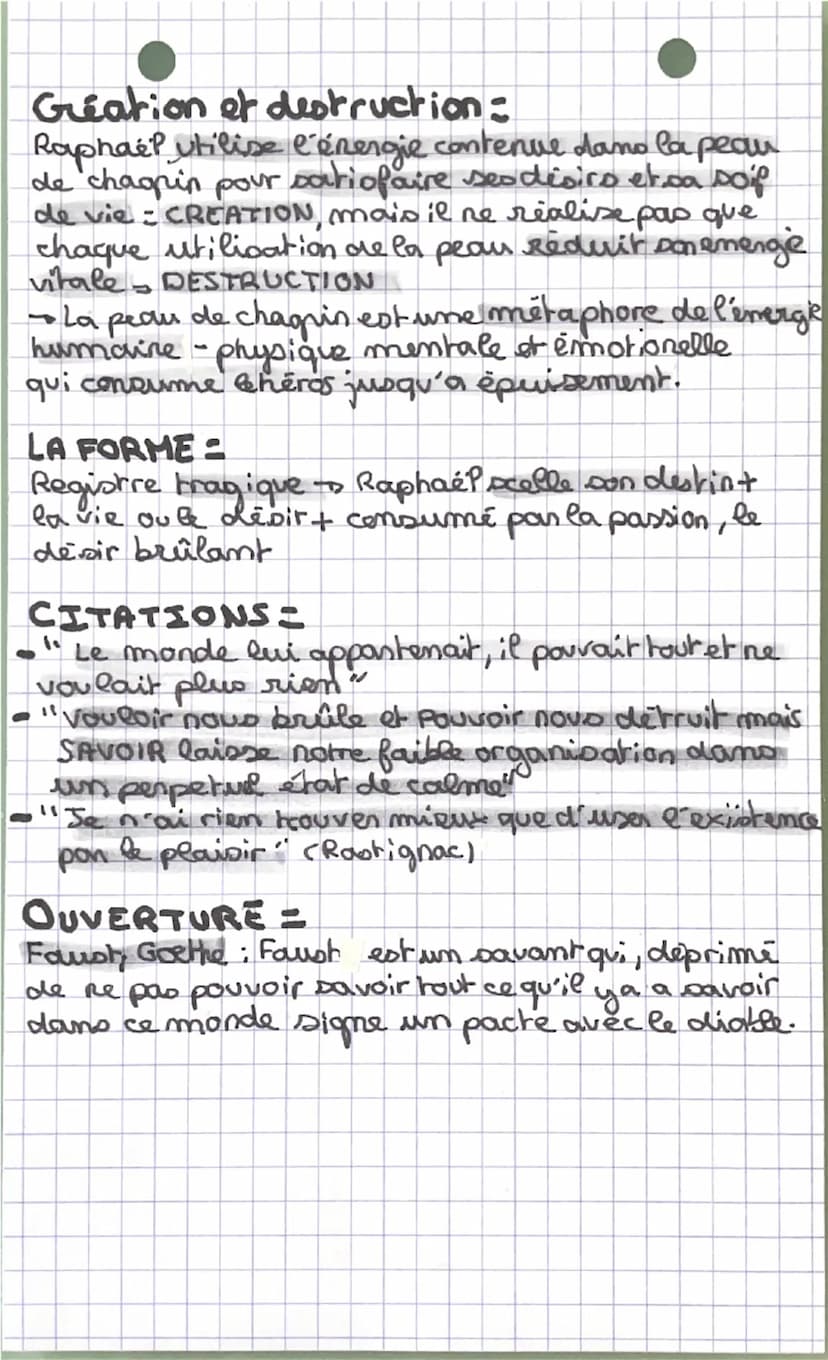 Création et destruction =
Raphaël utilise l'énergie contenue dans la peau
de chagrin pour satisfaire ses désirs et sa soif
de vie = CREATION, mais il ne réalise pas que
chaque utilisation de la peau réduit son energie
vitale → DESTRUCTION
→ La peau de chagrin est une métaphore de l'énergie
humaine - physique mentale et émotionelle
qui consume le héros jusqu'a épuisement.
LA FORME =
Registre tragique → Raphaël scelle son destin +
la vie ou le désir + consumé par la passion, le
désir brûlant
CITATIONS =
- "Le monde lui appartenait, il pouvait tout et ne
voulait plus rien"
- "Vouloir nous brûle et Pouvoir nous détruit mais
SAVOIR laisse notre faible organisation dans
un perpetuel état de calme"
- "Je n'ai rien trouver mieux que d'user l'existence
par le plaisir" (Rastignac)
OUVERTURE =
Faust, Goethe : Faust est un savant qui, déprimé
de ne pas pouvoir savoir tout ce qu'il y a a savoir
dans ce monde signe un pacte avec le diable.